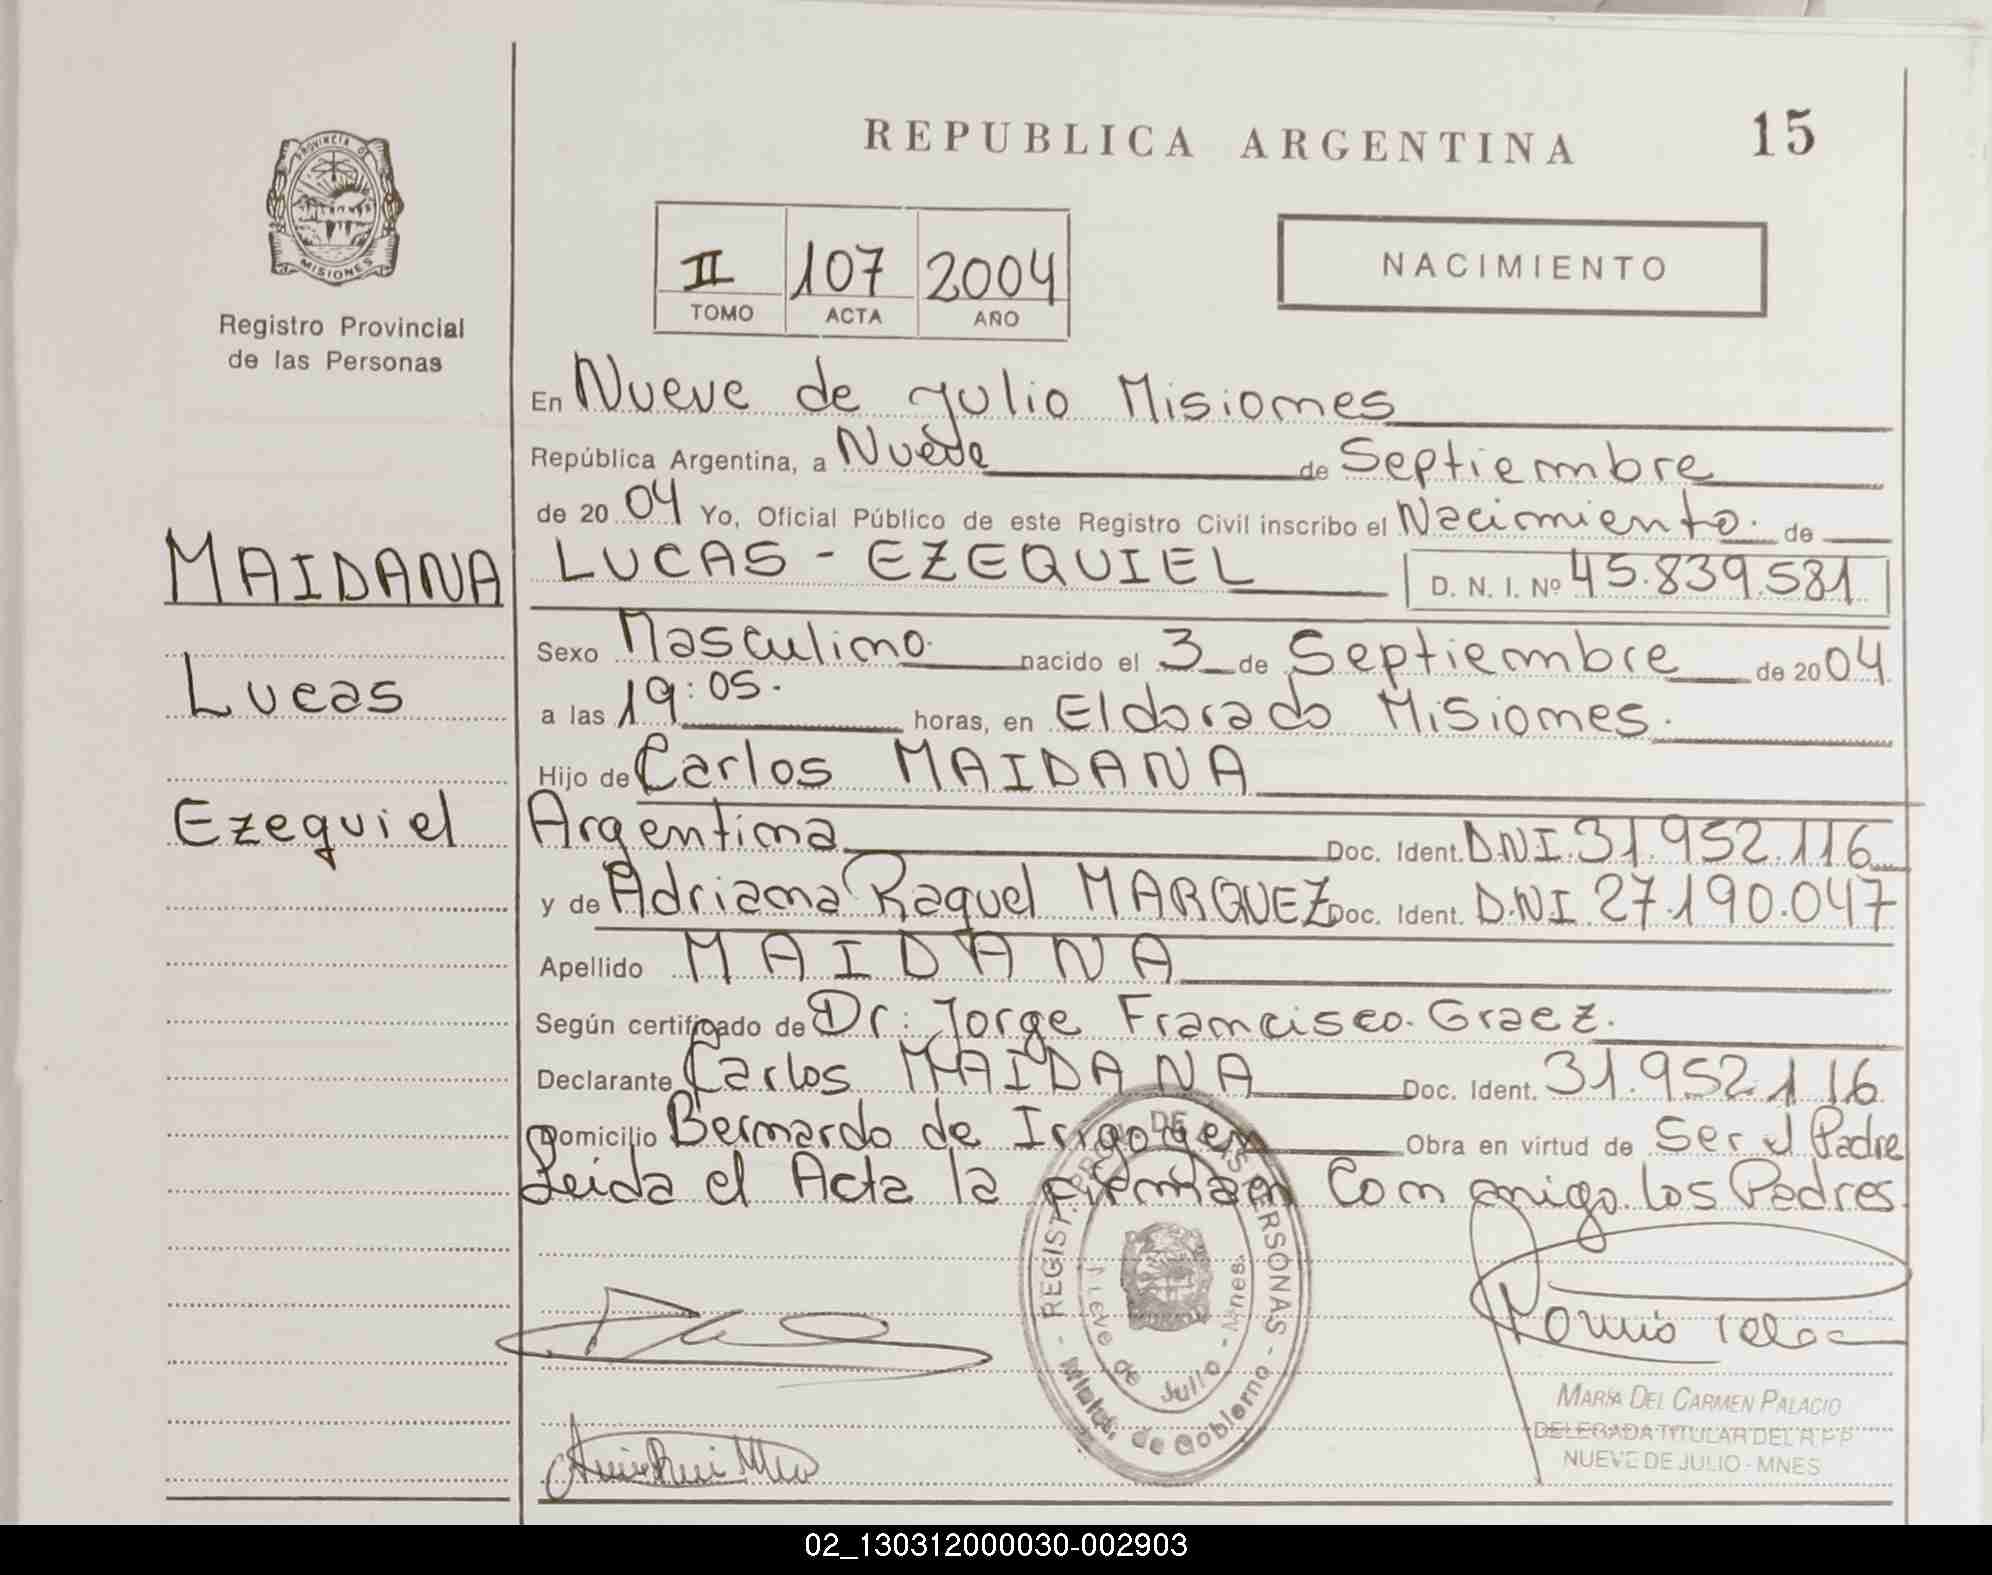 REPUBLICA ARGENTINA
15
PROVINCIA DE
MISIONES
Registro Provincial
de las Personas
II 107 2004
TOMO ACTA AÑO
NACIMIENTO
En Nueve de Julio Misiones
República Argentina, a Nueve de Septiembre
de 20 04 Yo, Oficial Público de este Registro Civil inscribo el Nacimiento. de
MAIDANA
LUCAS - EZEQUIEL D. N. I. Nº 45.839.581
Lucas
Ezequiel
Sexo Masculino. nacido el 3 de Septiembre de 20 04
a las 19:05. horas, en Eldorado Misiones.
Hijo de Carlos MAIDANA
Argentina Doc. Ident. D.N.I. 31.952.116
y de Adriana Raquel MARQUEZ Doc. Ident. D.N.I. 27.190.047
Apellido MAIDANA
Según certificado de Dr: Jorge Francisco. Graez.
Declarante Carlos MAIDANA Doc. Ident. 31.952.116
Domicilio Bernardo de Irigoyen Obra en virtud de Ser el Padre
Leida el Acta la firman Con migo los Padres.
REGIST. PROV. DE LAS PERSONAS
Nueve de Julio - Mnes.
de Gobierno
MARÍA DEL CARMEN PALACIO
DELEGADA TITULAR DEL R.P.P
NUEVE DE JULIO - MNES
02_130312000030-002903